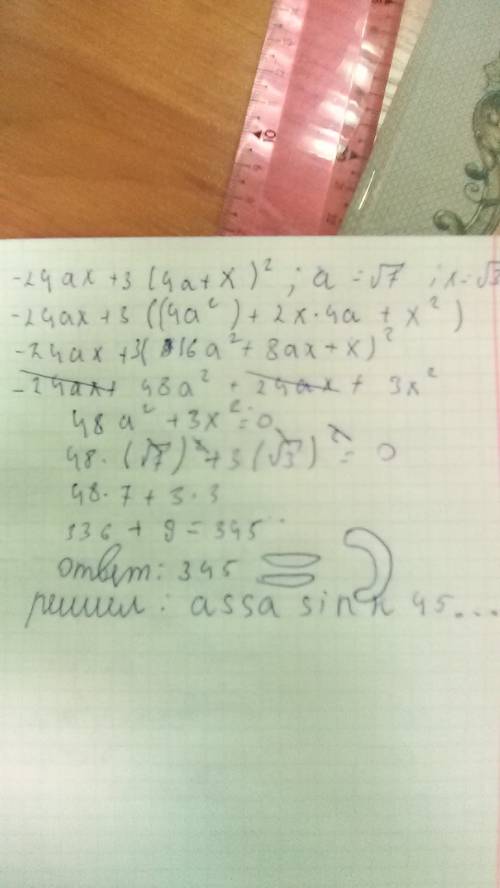 10
-24ax + 3 (4a + x)²; a = √7; x = √3
-24ax + 3 ((4a²) + 2x·4a + x²)
-24ax + 3(16a² + 8ax + x)²
-24ax + 48a² + 24ax + 3x²
48a² + 3x² = 0
48·(√7)² + 3(√3)² = 0
48·7 + 3·3
336 + 9 = 345
ответ: 345
решил: assa sinx 45...